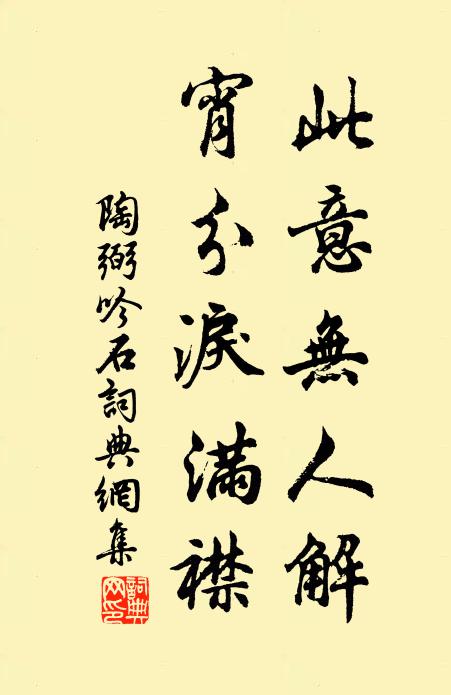 此意無人解
宵分淚滿襟
陶弼吟石詞典網集
詞典網印